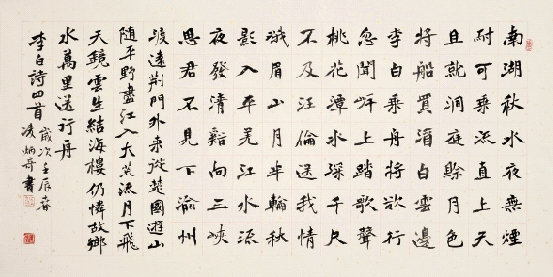 南湖秋水夜無煙
耐可乘流直上天
且就洞庭賒月色
將船買酒白雲邊
李白乘舟將欲行
忽聞岸上踏歌聲
桃花潭水深千尺
不及汪倫送我情
峨眉山月半輪秋
影入平羌江水流
夜發清谿向三峽
思君不見下渝州
渡遠荊門外來從楚國遊山
隨平野盡江入大荒流月下飛
天鏡雲生結海樓仍憐故鄉
水萬里送行舟
李白詩四首
歲次壬辰春
凌炳書